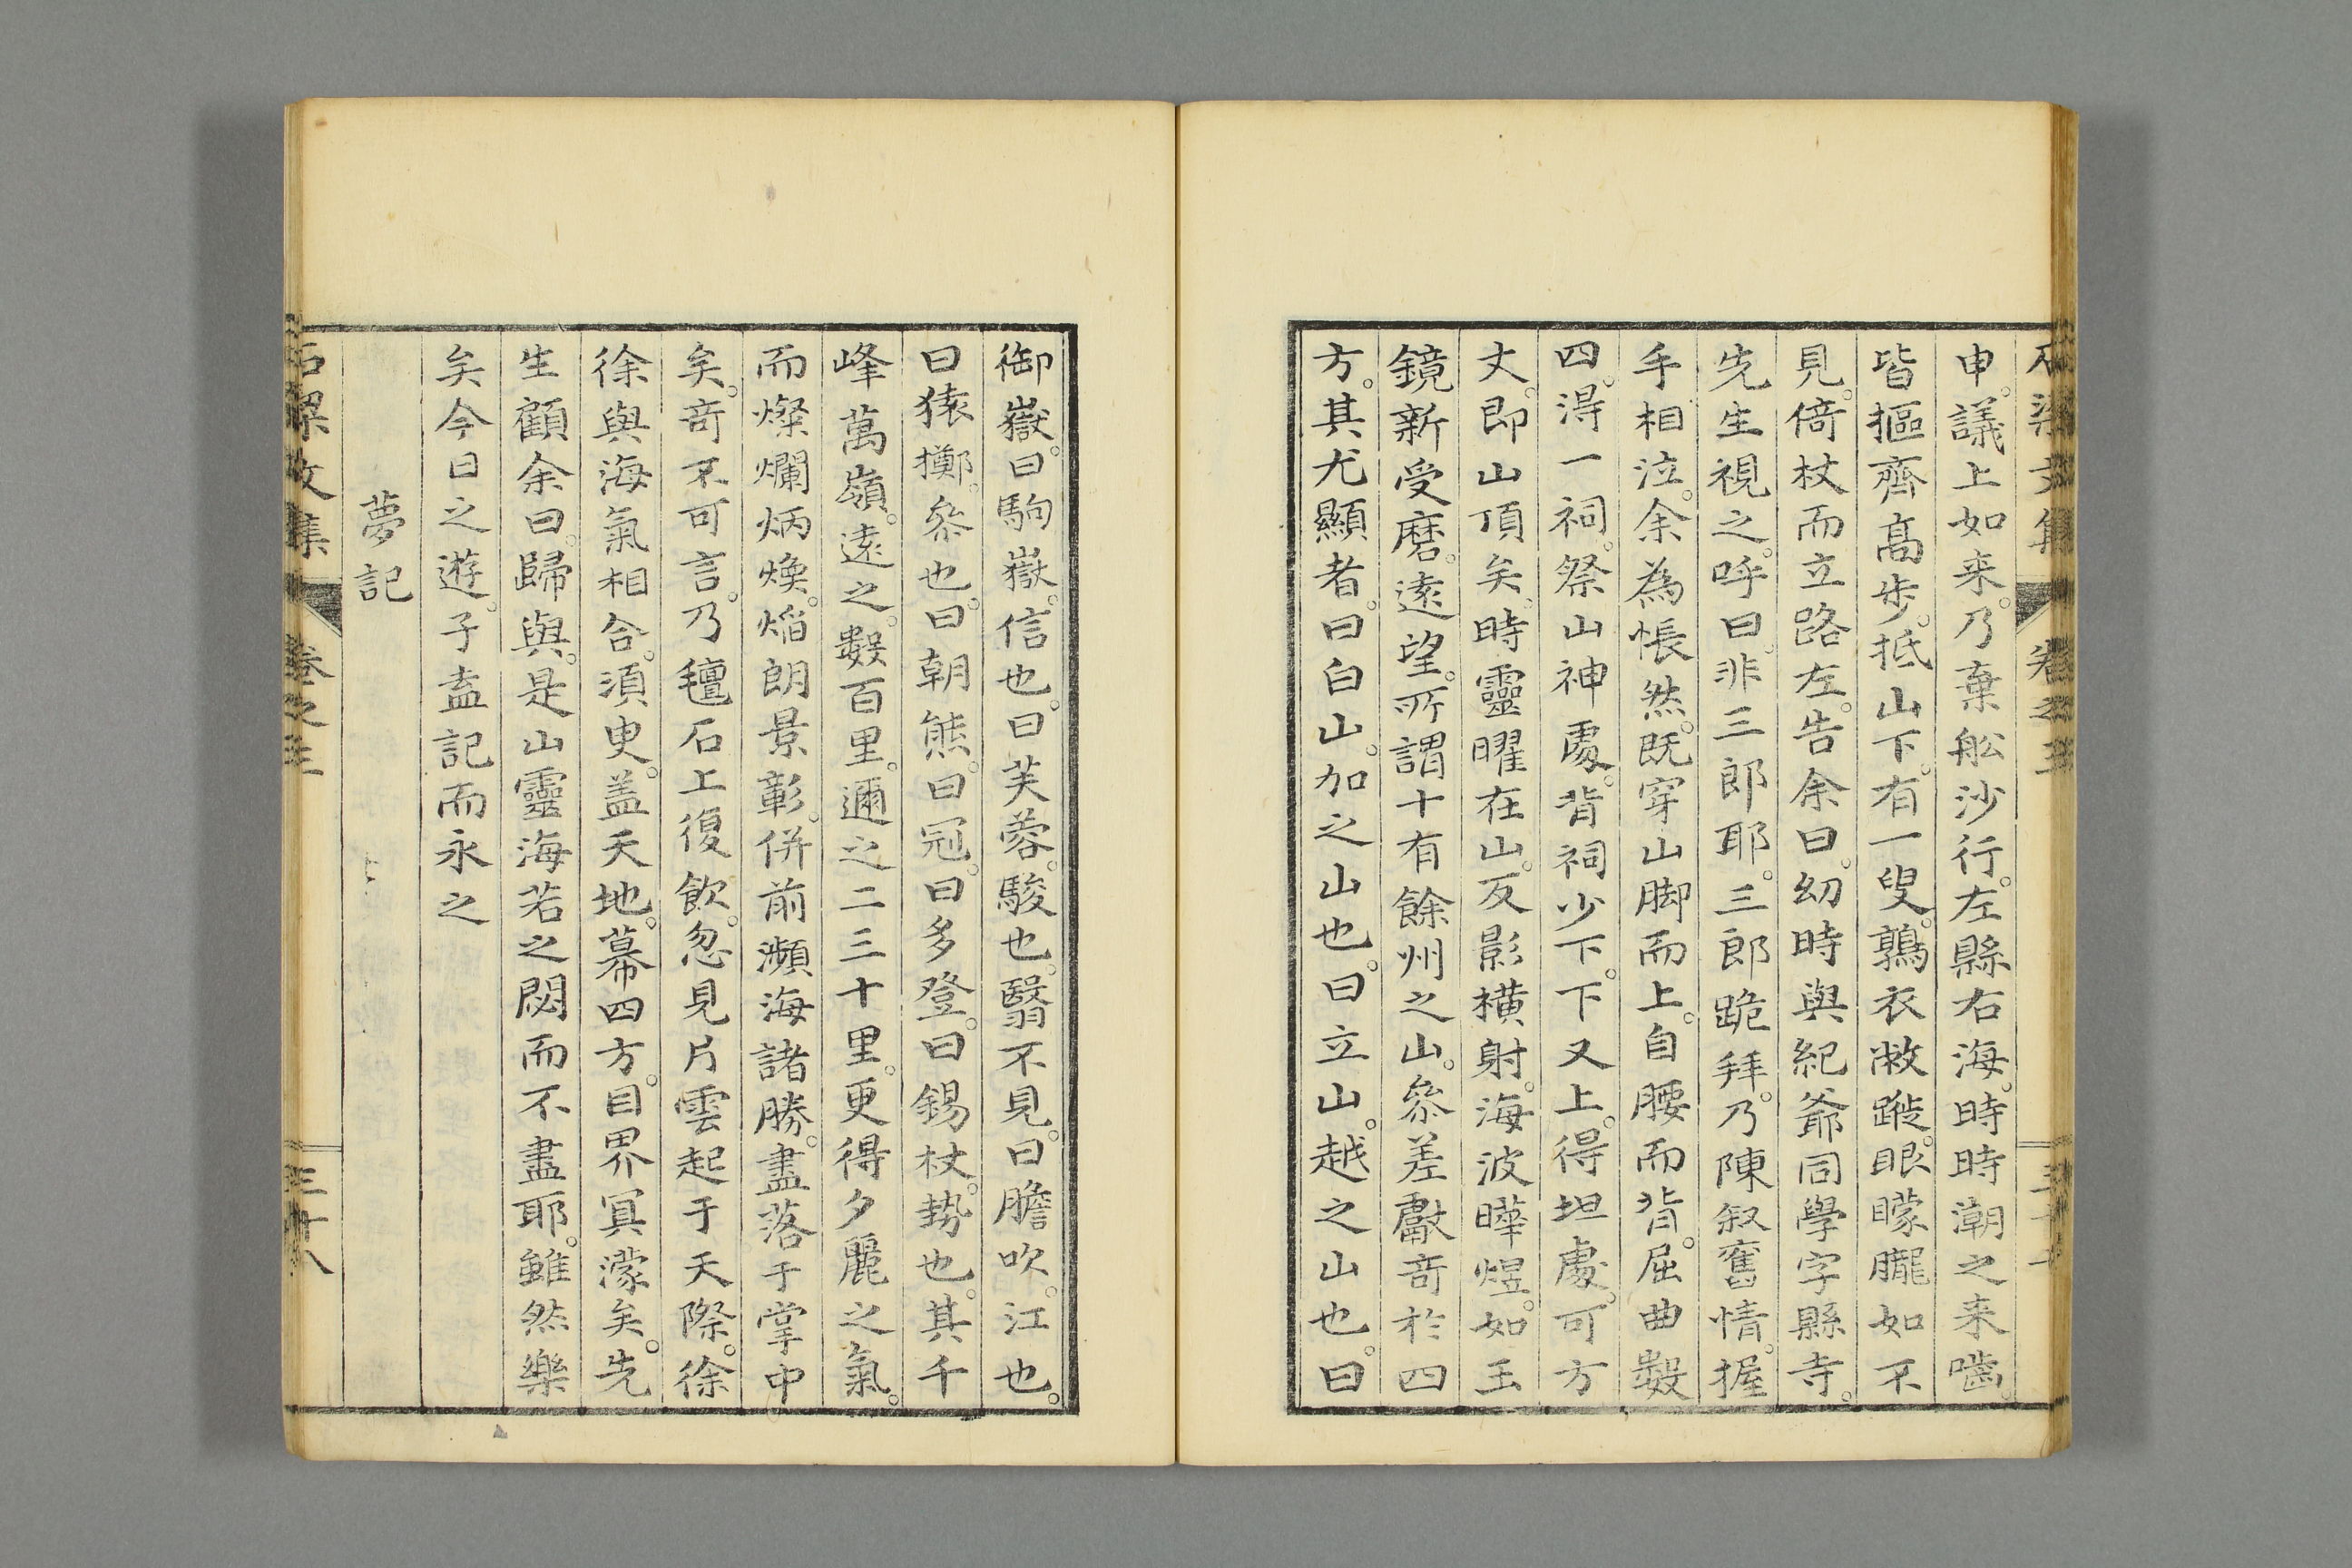 申。議上如来。乃棄舩沙行。左縣右海。時時潮之来嚙。
皆摳齊高步。抵山下。有一叟。鶉衣敝蹝。眼矇朧如不
見。倚杖而立路左。告余曰。幼時與紀爺同學字縣寺。
先生視之。呼曰。非三郎耶。三郎跪拜。乃陳叙舊情。握
手相泣。余為悵然。既穿山脚而上。自腰而背。屈曲數
四。得一祠。祭山神處。背祠少下。下又上。得坦處。可方
丈。即山頂矣。時靈曜在山。反影横射。海波曄煜。如玉
鏡新受磨。遠望。所謂十有餘州之山。叅差獻竒於四
方。其尤顯者。曰白山。加之山也。曰立山。越之山也。曰
御嶽。曰駒嶽。信也。曰芙蓉。駿也。翳不見。曰膽吹。江也。
曰猿擲。叅也。曰朝熊。曰冠。曰多登。曰錫杖。勢也。其千
峰萬嶺。遠之。數百里。邇之二三十里。更得夕麗之氣。
而燦爛炳煥。焔朗景彰。併前瀕海諸勝。盡落于掌中
矣。竒不可言。乃氊石上復飲。忽見片雲起于天際。徐
徐與海氣相合。須臾。盖天地。幕四方。目界冥濛矣。先
生顧余曰。歸與。是山靈海若之閟而不盡耶。雖然樂
矣今日之遊。子盍記而永之
夢記
石梁文集
卷之三
三十八